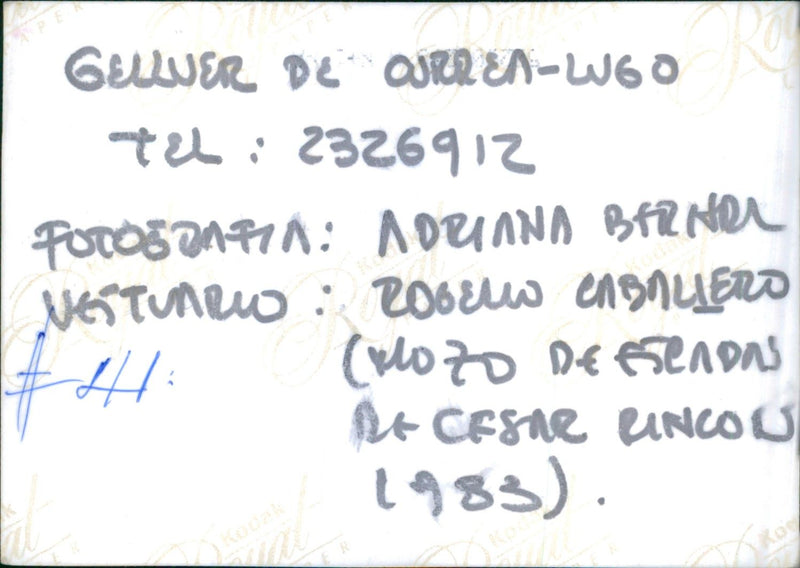 GELLVER DE CURREA-LUGO
TEL: 2326912
FOTOGRAFIA: ADRIANA BERNAL
VESTUARIO: ROGELIO CABALLERO
(MOZO DE ESPADAS
DE CESAR RINCON
1983).
Kodak
Royal
PAPER